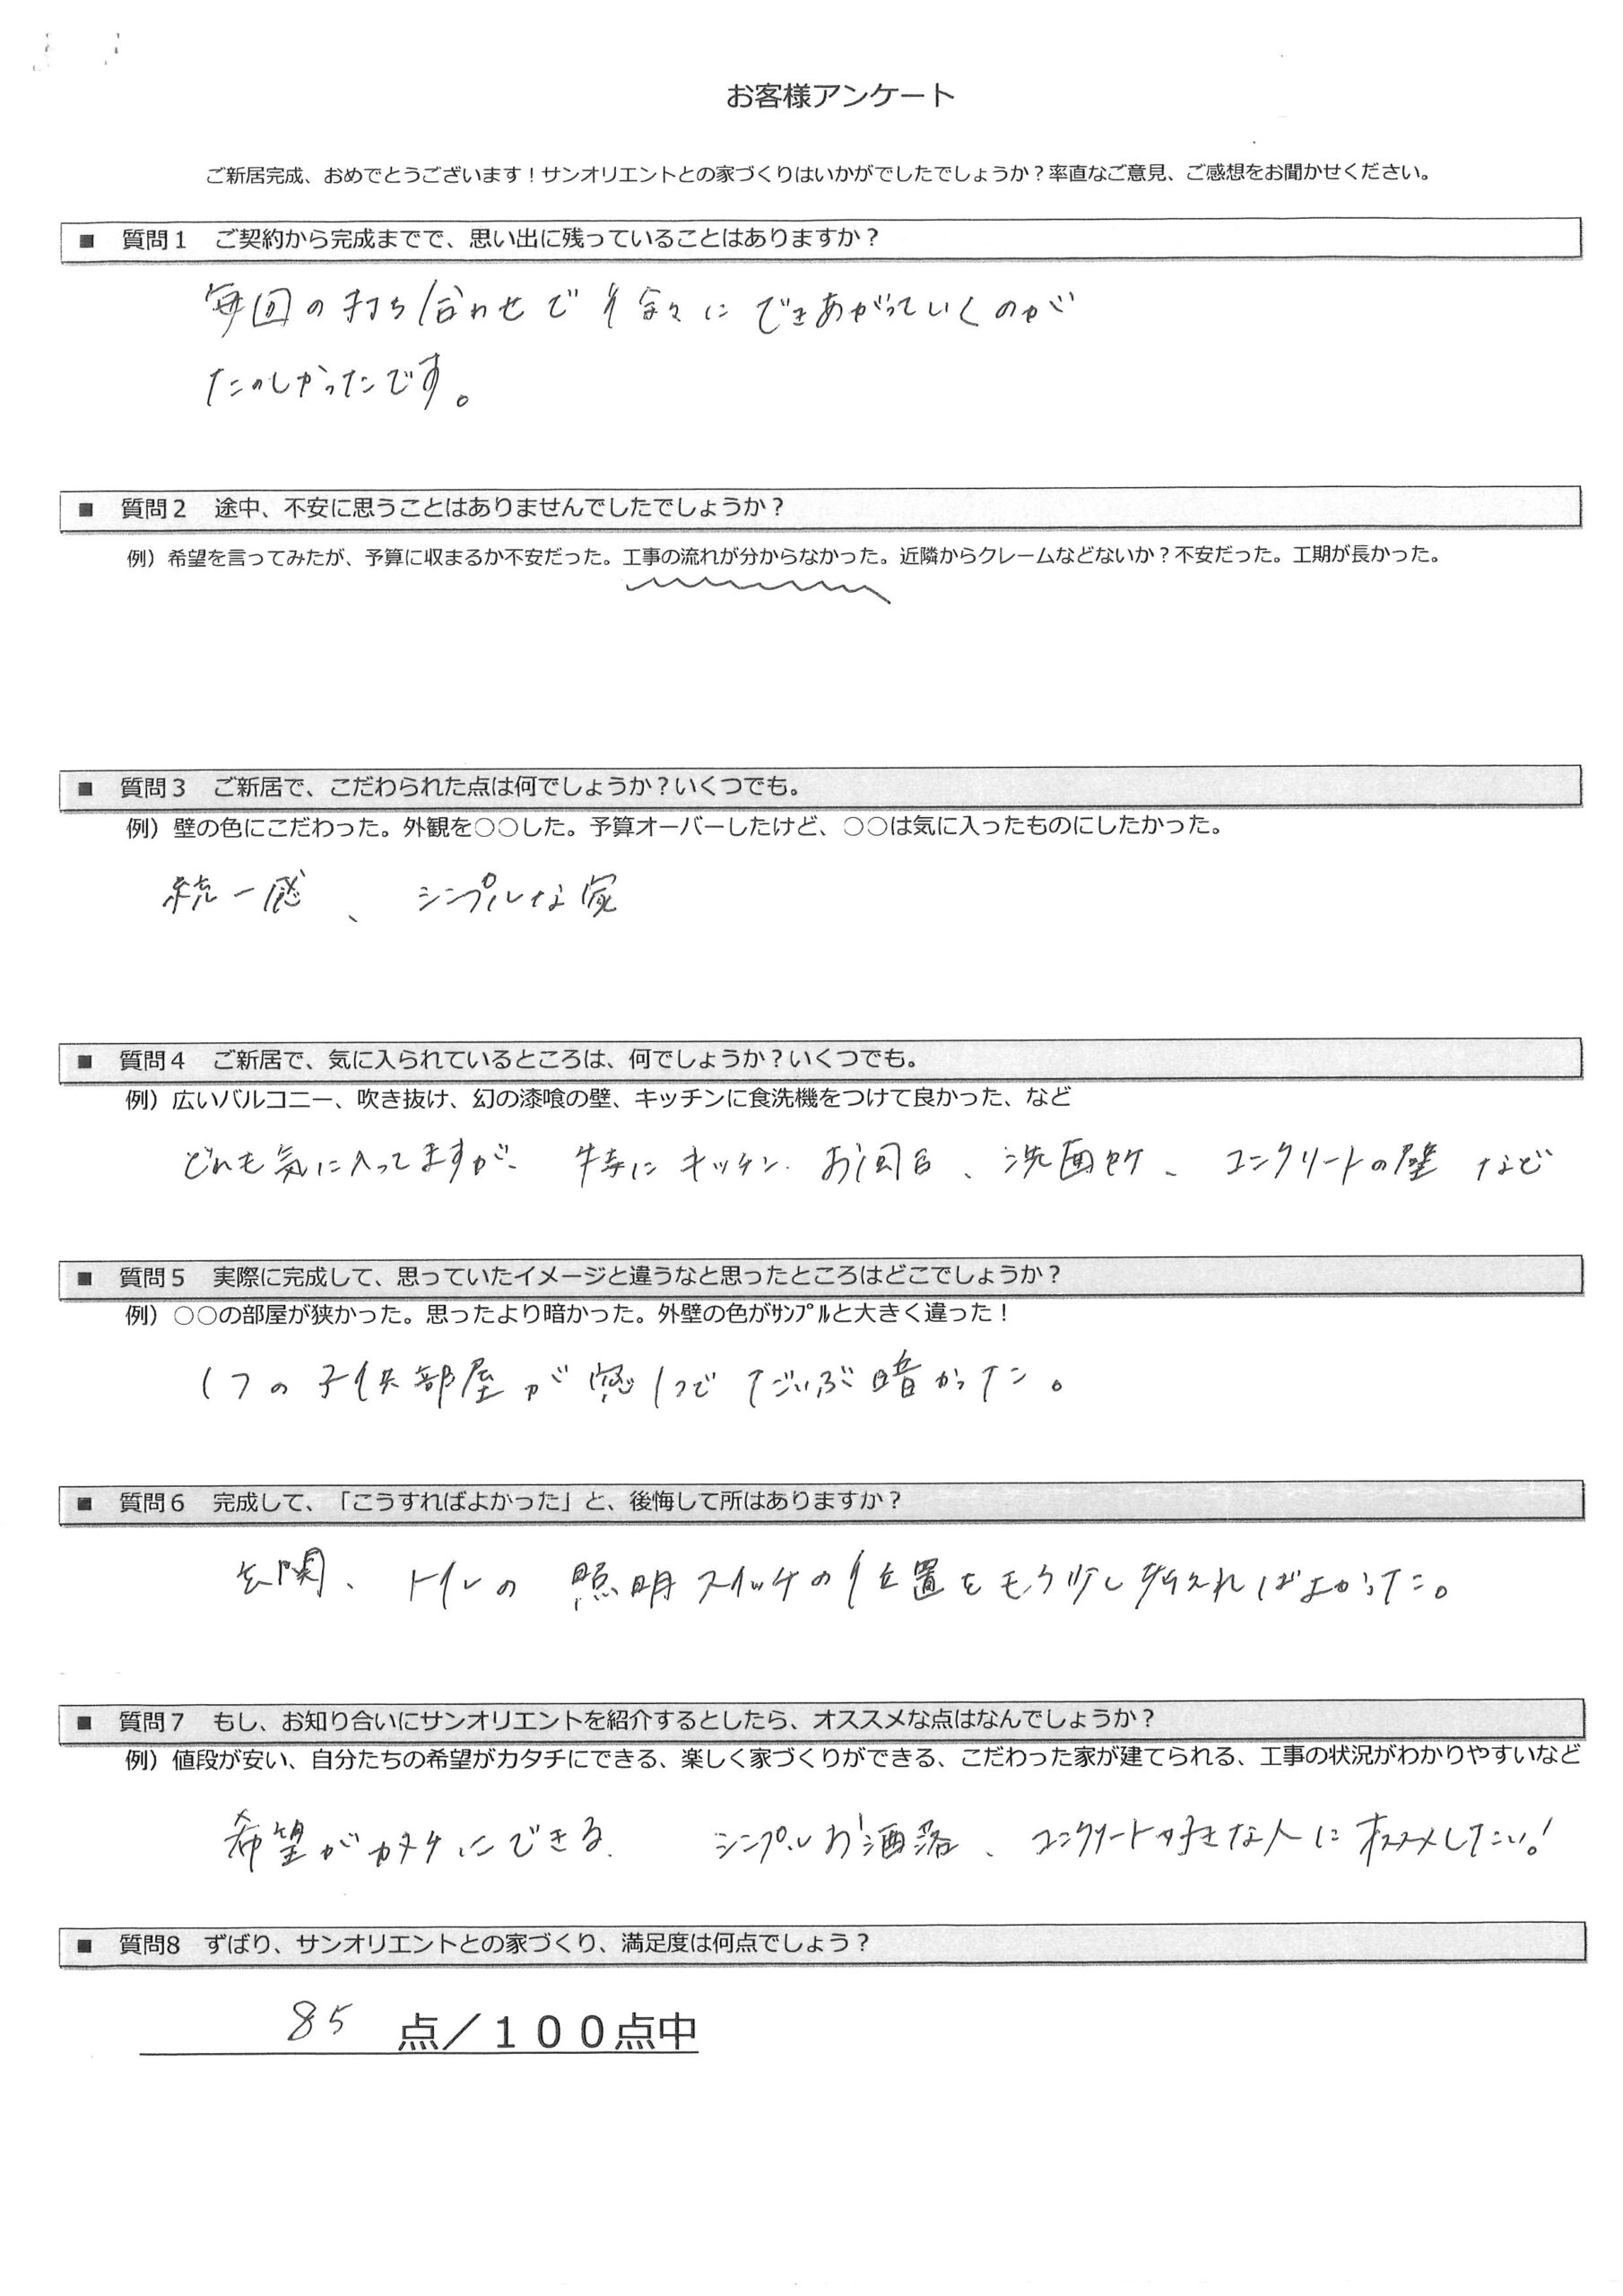 お客様アンケート
ご新居完成、おめでとうございます！サンオリエントとの家づくりはいかがでしたでしょうか？率直なご意見、ご感想をお聞かせください。
■ 質問１ ご契約から完成までで、思い出に残っていることはありますか？
毎回の打ち合わせで徐々にできあがっていくのが
たのしかったです。
■ 質問２ 途中、不安に思うことはありませんでしたでしょうか？
例）希望を言ってみたが、予算に収まるか不安だった。工事の流れが分からなかった。近隣からクレームなどないか？不安だった。工期が長かった。
■ 質問３ ご新居で、こだわられた点は何でしょうか？いくつでも。
例）壁の色にこだわった。外観を○○した。予算オーバーしたけど、○○は気に入ったものにしたかった。
統一感、シンプルな家
■ 質問４ ご新居で、気に入られているところは、何でしょうか？いくつでも。
例）広いバルコニー、吹き抜け、幻の漆喰の壁、キッチンに食洗機をつけて良かった、など
どれも気に入ってますが、特にキッチン、お風呂、洗面所、コンクリートの壁 など
■ 質問５ 実際に完成して、思っていたイメージと違うなと思ったところはどこでしょうか？
例）○○の部屋が狭かった。思ったより暗かった。外壁の色がｻﾝﾌﾟﾙと大きく違った！
1つの子供部屋が窓1つでだいぶ暗かった。
■ 質問６ 完成して、「こうすればよかった」と、後悔して所はありますか？
玄関、トイレの照明スイッチの位置をもう少し考えればよかった。
■ 質問７ もし、お知り合いにサンオリエントを紹介するとしたら、オススメな点はなんでしょうか？
例）値段が安い、自分たちの希望がカタチにできる、楽しく家づくりができる、こだわった家が建てられる、工事の状況がわかりやすいなど
希望がカタチにできる、シンプルお洒落、コンクリート好きな人にオススメしたい！
■ 質問8 ずばり、サンオリエントとの家づくり、満足度は何点でしょう？
85 点／１００点中